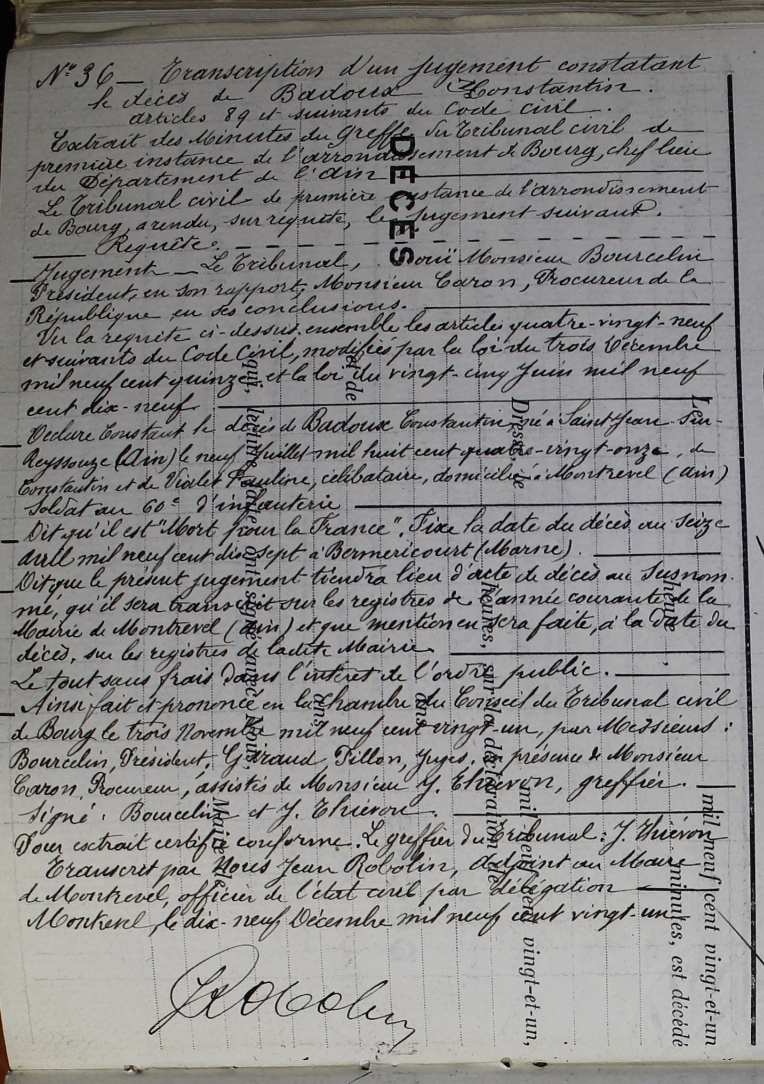 N° 36 — Transcription d'un jugement constatant
le décès de Badoux Constantin.
articles 89 et suivants du Code civil.
Extrait des Minutes du Greffe du Tribunal civil de
première instance de l'arrondissement de Bourg, chef lieu
du Département de l'Ain
Le Tribunal civil de première instance de l'arrondissement
de Bourg, a rendu, sur requête, le jugement suivant.
Requête.
Jugement — Le Tribunal, ouï Monsieur Bourcelin
Président, en son rapport, Monsieur Caron, Procureur de la
République en ses conclusions.
Vu la requête ci-dessus, ensemble les articles quatre-vingt-neuf
et suivants du Code Civil, modifiés par la loi du trois Décembre
mil neuf cent quinze et la loi du vingt-cinq Juin mil neuf
cent dix-neuf
Déclare constant le décès de Badoux Constantin né à Saint-Jean-sur-
Reyssouze (Ain) le neuf Juillet mil huit cent quatre-vingt-onze, de
Constantin et de Vialet Pauline, célibataire, domicilié à Montrevel (Ain)
soldat au 60e d'infanterie
Dit qu'il est "Mort pour la France". Fixe la date du décès au seize
avril mil neuf cent dix sept à Bermericourt (Marne).
Dit que le présent jugement tiendra lieu d'acte de décès au susnom-
mé, qu'il sera transcrit sur les registres de l'année courante de la
Mairie de Montrevel (Ain) et que mention en sera faite, à la date du
décès, sur les registres de ladite Mairie
Le tout sans frais dans l'intérêt de l'ordre public.
Ainsi fait et prononcé en la chambre du Conseil du Tribunal civil
de Bourg le trois Novembre mil neuf cent vingt-un, par Messieurs :
Bourcelin, Président, Giraud, Pillon, Juges, en présence de Monsieur
Caron, Procureur, assistés de Monsieur J. Thiévon, greffier.
Signé : Bourcelin et J. Thiévon.
Pour extrait certifié conforme. Le greffier du Tribunal : J. Thiévon
Transcrit par Nous Jean Robolin, adjoint au Maire
de Montrevel, officier de l'état civil par délégation
Montrevel, le dix-neuf Décembre mil neuf cent vingt-un
JRobolin
DÉCÈS
Le
heure
mil neuf cent vingt-et-un
minutes, est décédé
Dressé, le
mil neuf cent vingt-et-un,
heures, sur la déclaration de
ans
et de
ans
qui, lecture faite, ont signé avec Nous
Maire de